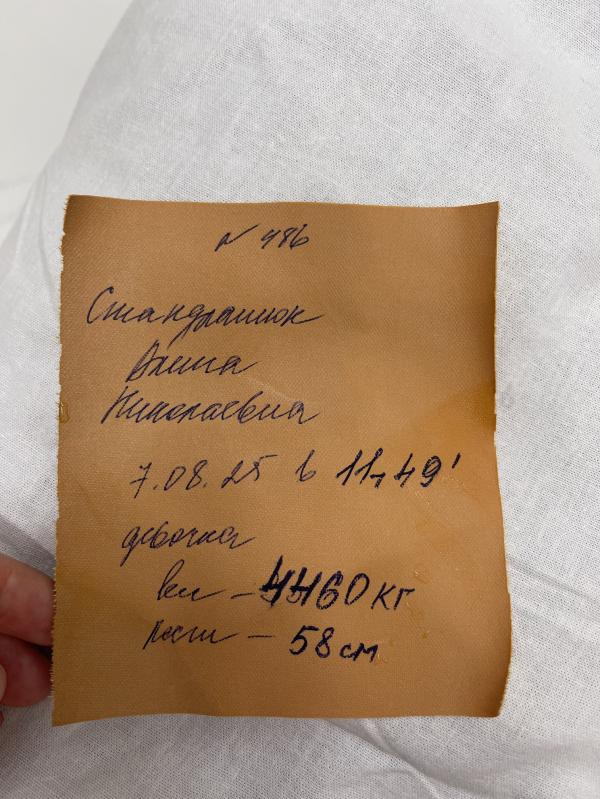 N 486
Стандратюк
Алина
Николаевна
7.08.25 в 11,49'
девочка
вес – 4460 кг
рост – 58 см